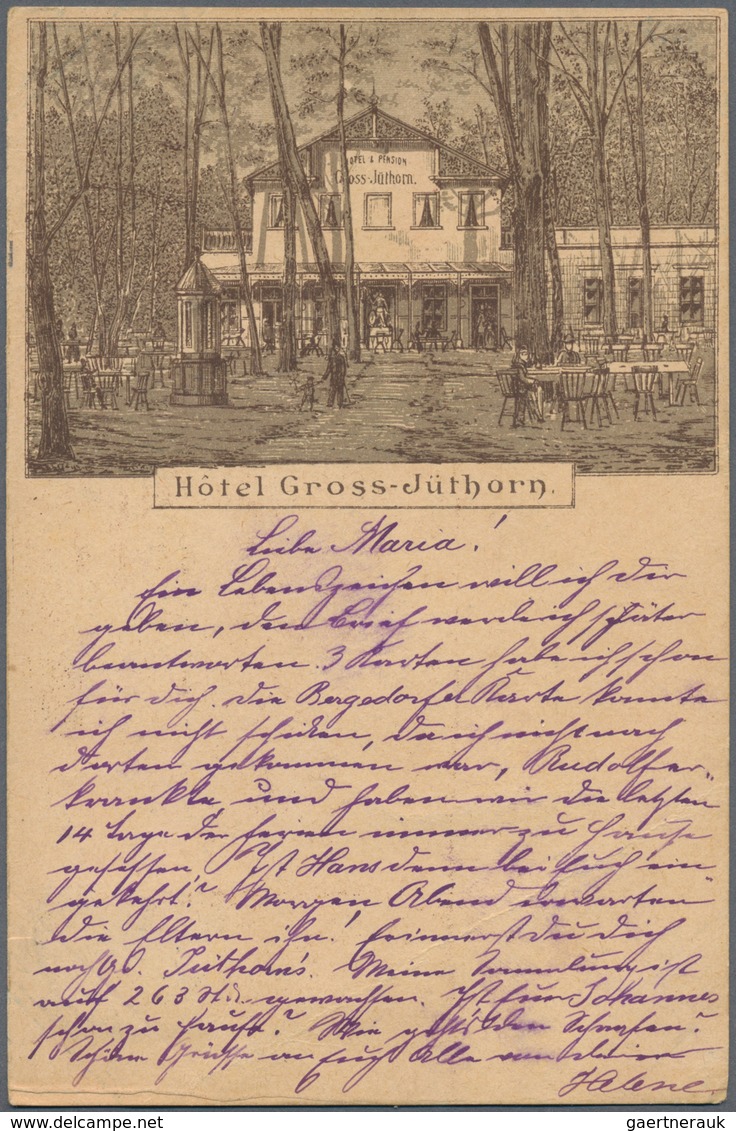 HOTEL & PENSION
Gross-Jüthorn.
Hôtel Gross-Jüthorn.
Liebe Maria!
Ein Lebenszeichen will ich dir
geben, den Brief werde ich später
beantworten. 3 Karten habe ich schon
für dich. Die Bergedorfer Karte konnte
ich nicht schicken, da ich nicht nach
dorten gekommen war, Rudolf er-
krankte und haben wir die letzten
14 Tage der Ferien immer zu Hause
gesessen, Ist Hans denn bei Euch ein
gekehrt? Morgen Abend erwarten
die Eltern ihn! Erinnerst du dich
noch Jüthorn's. Meine Sammlung ist
auf 263 St. gewachsen. Ist Johannes
schon zu Hause? Wie geht's den Schafen?
Schöne Grüsse an Euch Alle von deiner
Helene.
gaertnerauk / Delcampe.net